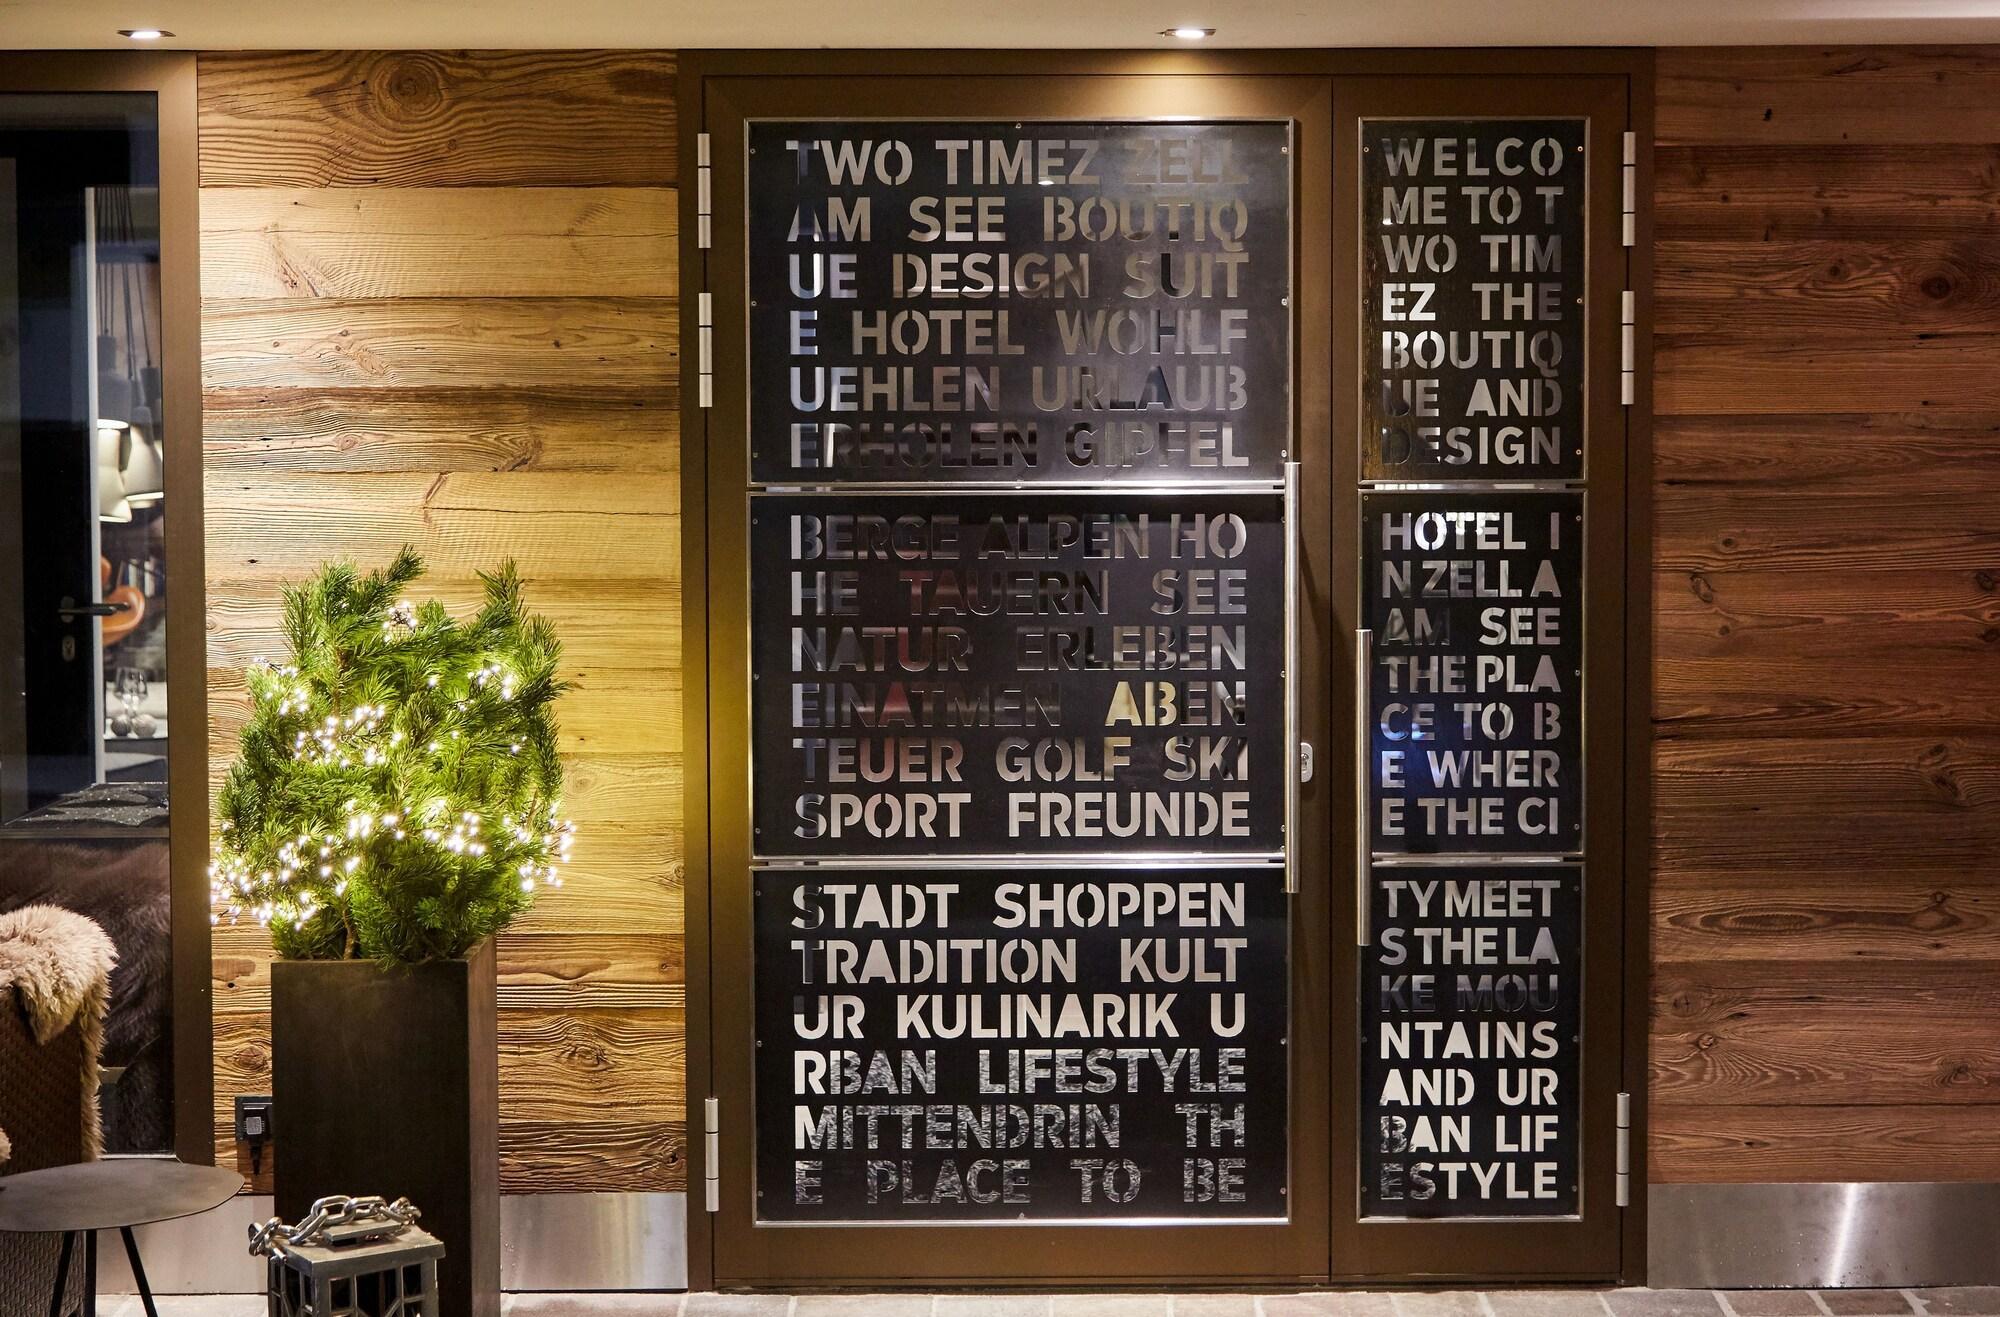 TWO TIMEZ ZELL
AM SEE BOUTIQ
UE DESIGN SUIT
E HOTEL WOHLF
UEHLEN URLAUB
ERHOLEN GIPFEL
BERGE ALPEN HO
HE TAUERN SEE
NATUR ERLEBEN
EINATMEN ABEN
TEUER GOLF SKI
SPORT FREUNDE
STADT SHOPPEN
TRADITION KULT
UR KULINARIK U
RBAN LIFESTYLE
MITTENDRIN TH
E PLACE TO BE
WELCO
ME TO T
WO TIM
EZ THE
BOUTIQ
UE AND
DESIGN
HOTEL I
N ZELL A
AM SEE
THE PLA
CE TO B
E WHER
E THE CI
TY MEET
S THE LA
KE MOU
NTAINS
AND UR
BAN LIF
ESTYLE